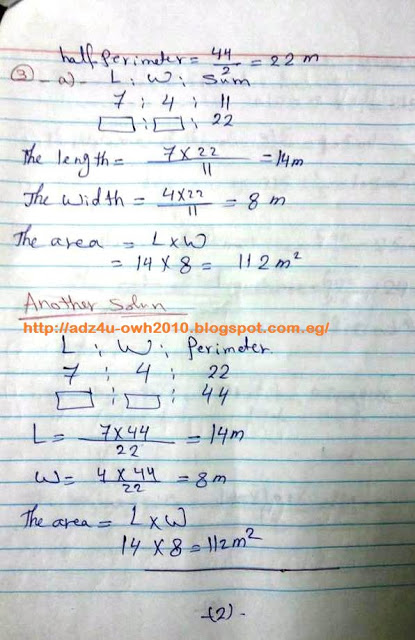 half Perimeter = 44/2 = 22 m
③ - a) - L : W : Sum
7 : 4 : 11
□ : □ : 22
The length = 7 × 22 / 11 = 14m
The width = 4 × 22 / 11 = 8 m
The area = L × W
= 14 × 8 = 112 m²
Another Solun
http://adz4u-owh2010.blogspot.com.eg/
L : W : Perimeter
7 : 4 : 22
□ : □ : 44
L = 7 × 44 / 22 = 14m
W = 4 × 44 / 22 = 8m
The area = L × W
14 × 8 = 112 m²
-(2)-